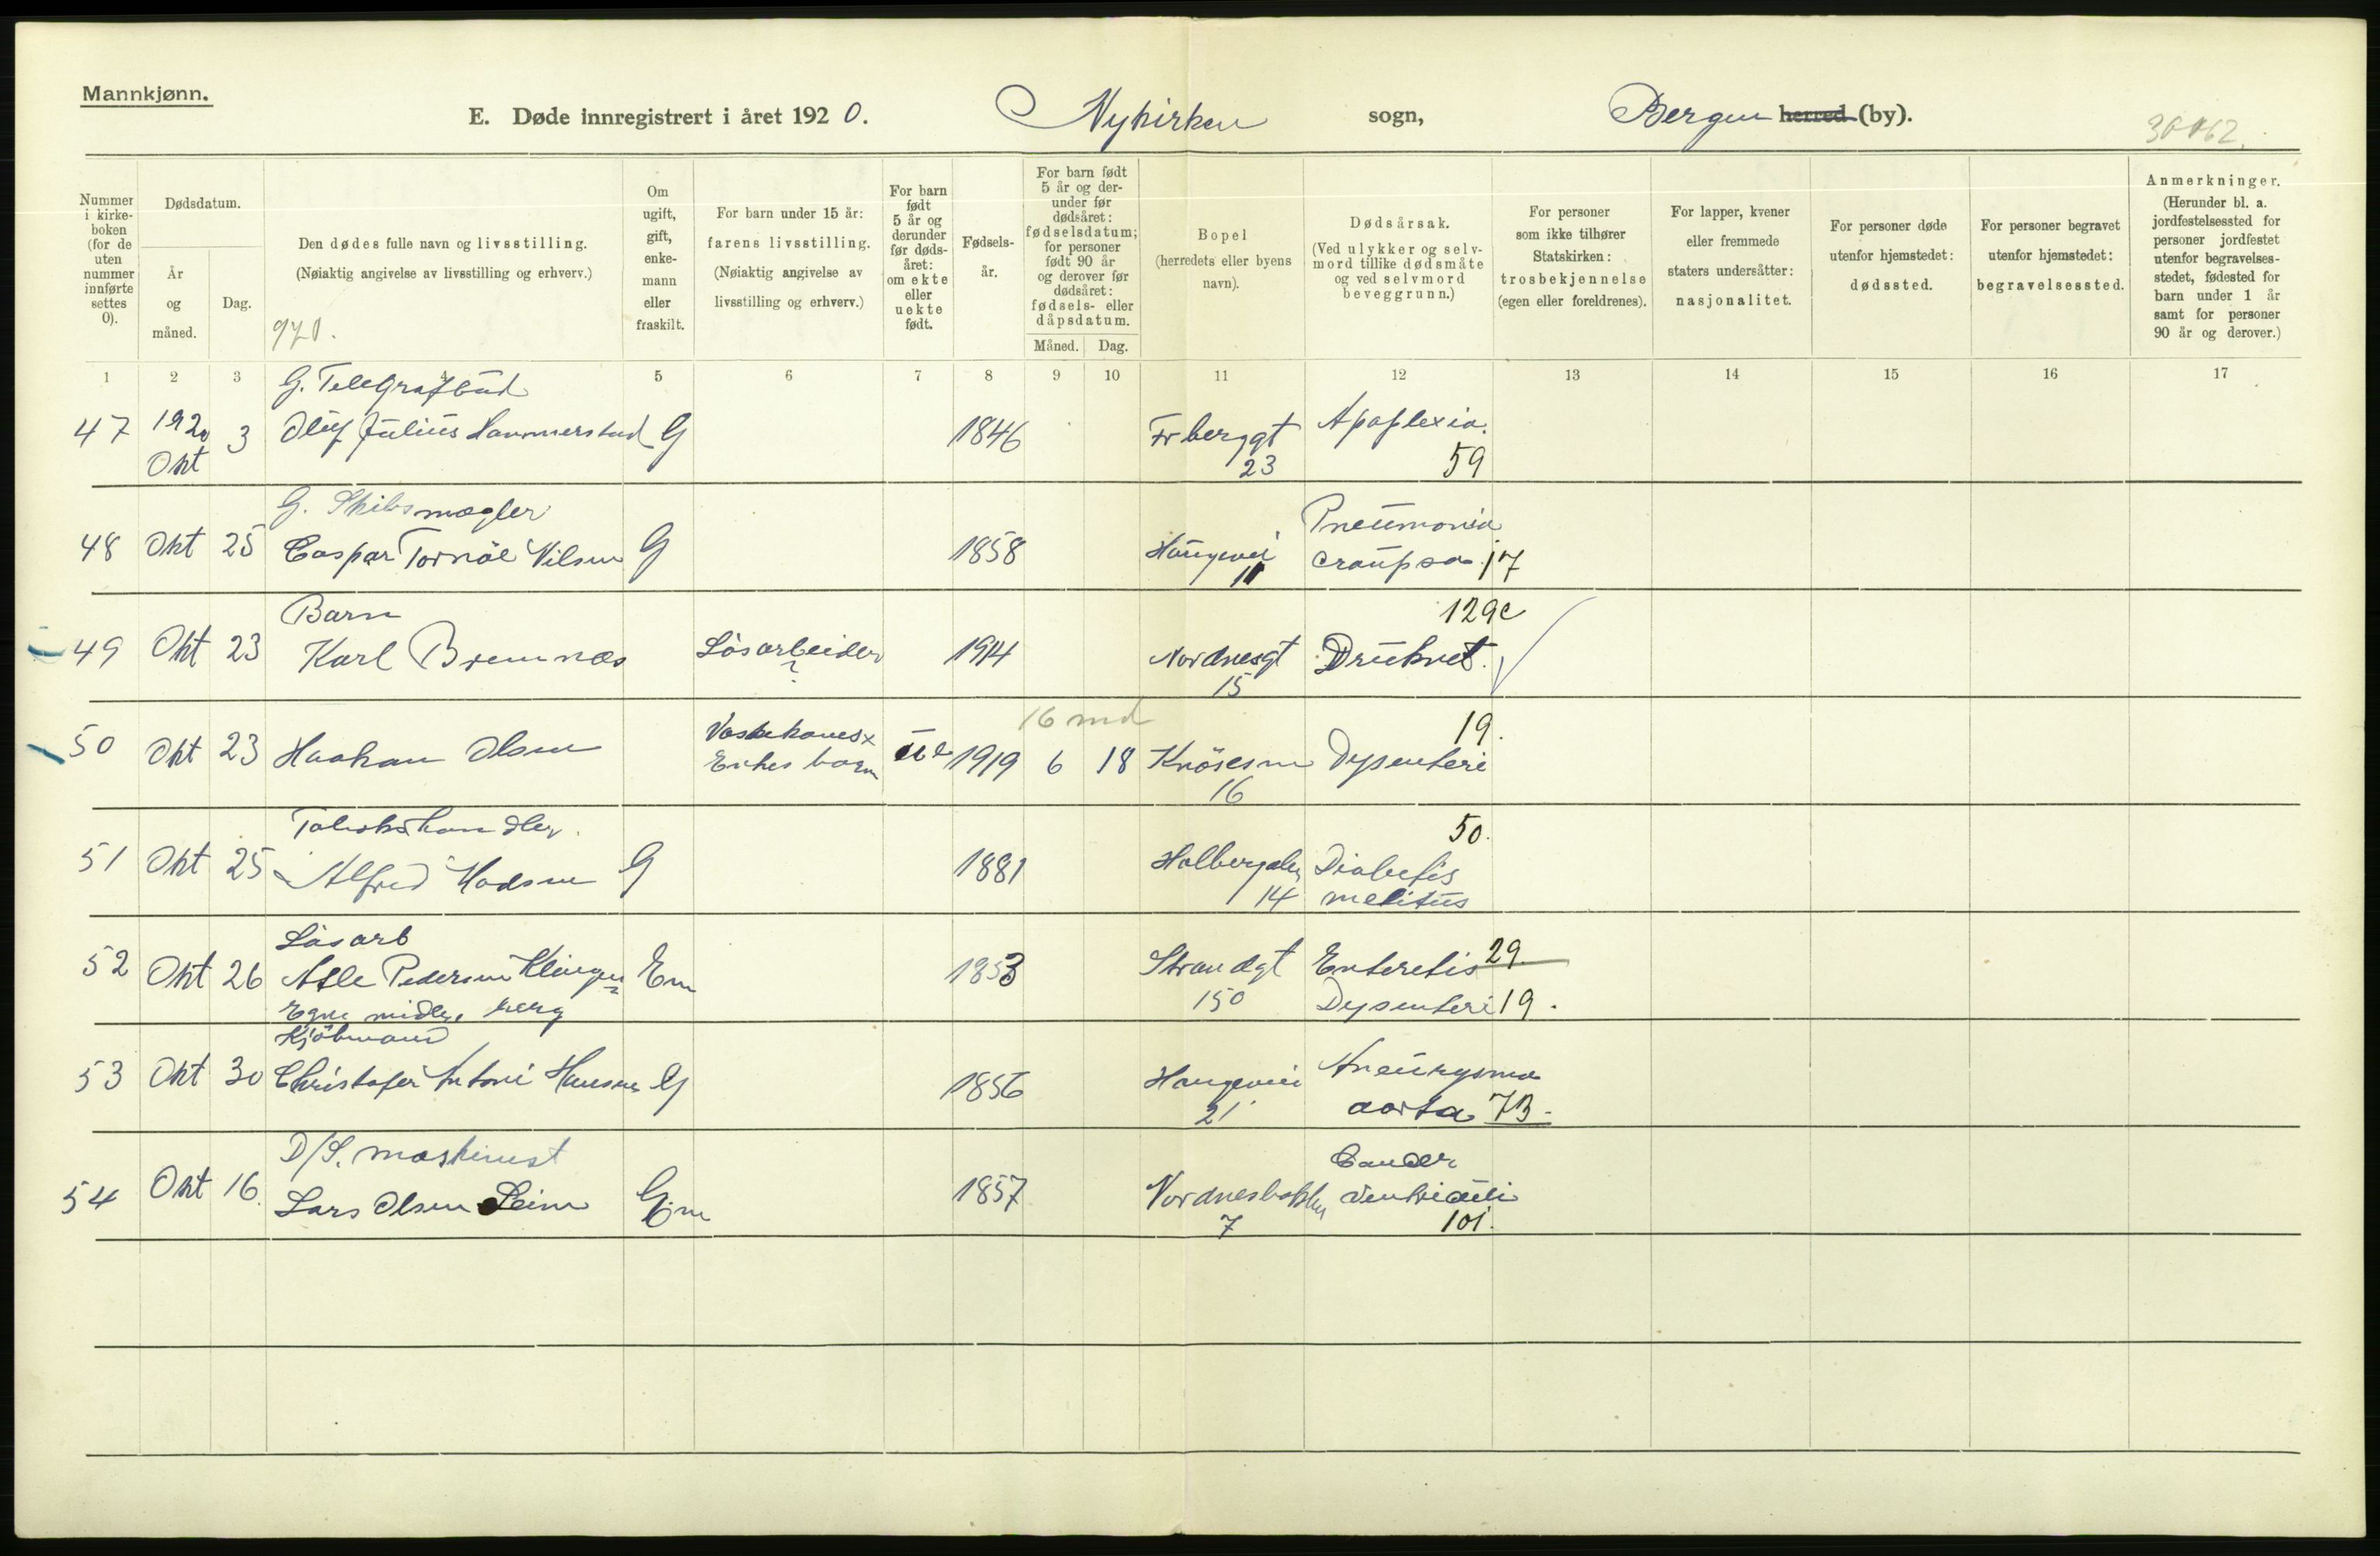 Mannkjønn.
E. Døde innregistrert i året 1920. Nykirken sogn, Bergen herred (by).
Nummer i kirke-boken (for de uten nummer innførte settes 0).
Dødsdatum.
År og måned.
Dag.
Den dødes fulle navn og livsstilling.
(Nøiaktig angivelse av livsstilling og erhverv.)
970.
Om ugift, gift, enke-mann eller fraskilt.
For barn under 15 år: farens livsstilling.
(Nøiaktig angivelse av livsstilling og erhverv.)
For barn født 5 år og derunder før døds-året: om ekte eller uekte født.
Fødsels-år.
For barn født 5 år og der-under før dødsåret: fødselsdatum; for personer født 90 år og derover før dødsåret: fødsels- eller dåpsdatum.
Måned. Dag.
Bopel
(herredets eller byens navn).
Dødsårsak.
(Ved ulykker og selv-mord tillike dødsmåte og ved selvmord beveggrunn.)
For personer som ikke tilhører Statskirken: trosbekjennelse (egen eller foreldrenes).
For lapper, kvener eller fremmede staters undersåtter: nasjonalitet.
For personer døde utenfor hjemstedet: dødssted.
For personer begravet utenfor hjemstedet: begravelsessted.
Anmerkninger.
(Herunder bl. a. jordfestelsessted for personer jordfestet utenfor begravelses-stedet, fødested for barn under 1 år samt for personer 90 år og derover.)
1 2 3 4 5 6 7 8 9 10 11 12 13 14 15 16 17
G. Telegrafbud
47 1920 Okt 3 Oluf Julius Hammerstad G 1846 Frberggt 23 Apoplexia. 59
G. Skibsmægler
48 Okt 25 Caspar Tornöe Nilsen G 1858 Haugevei 11 Pneumonia crouposa 17
Barn
49 Okt 23 Karl Bremnæs Lösarbeider 1914 Nordnesgt 15 129c Druknet.
16 md
50 Okt 23 Haakan Olsen Vaskekones x Enkes barn Ue 1919 6 18 Knösesm 16 19. Dysenteri
Tobakshandler.
51 Okt 25 Alfred Madsen G 1881 Holbergsalm 14 50. Diabetis melitus
Lösarb
52 Okt 26 Atle Pedersen Klingen berg Em 1853 Strandgt 150 Enteretis 29 Dysenteri 19.
Egne midler
Kjöbmand
53 Okt 30 Christofer Antoni Hansen G 1856 Haugevei 21 Aneurysma aorta 73.
D/S. maskinist
54 Okt 16. Lars Olsen Leine Em 1857 Nordnesbakken 7 Cancer ventriculi 101.